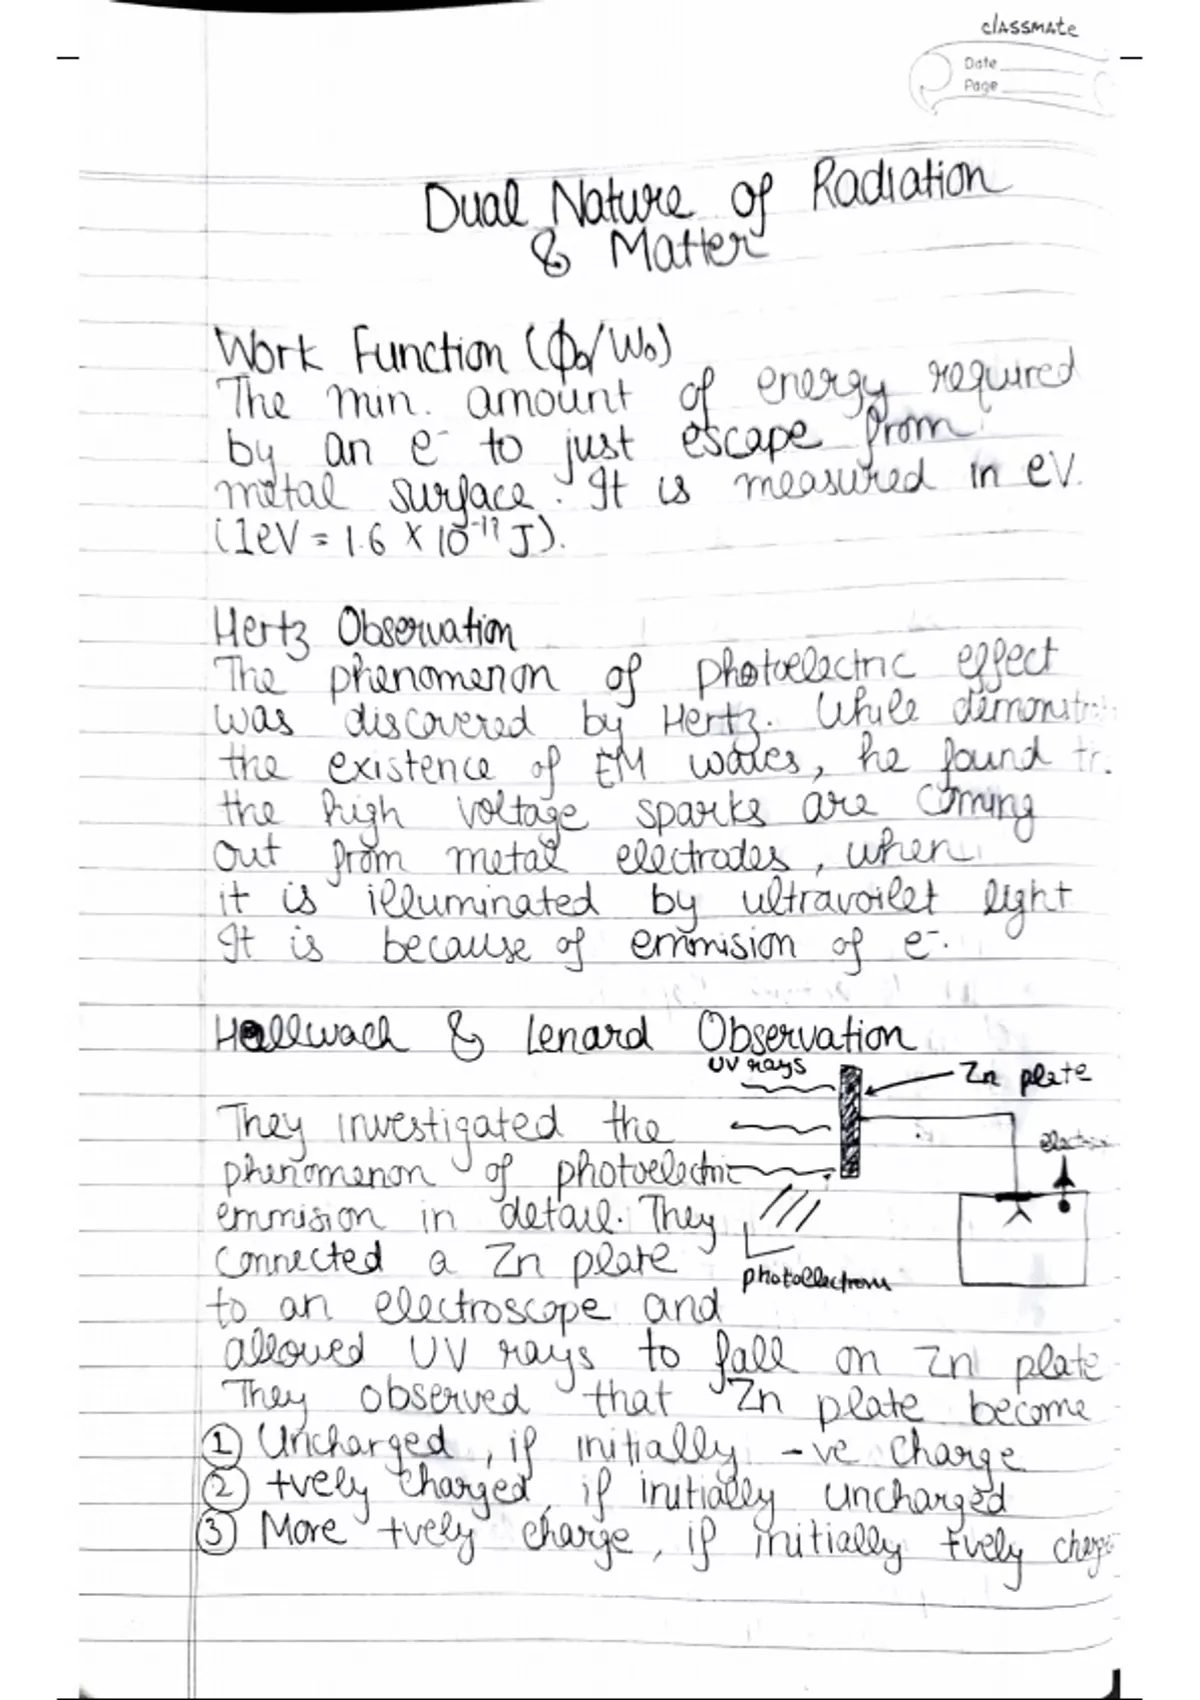 classmate
Date
Page
Dual Nature of Radiation
& Matter
Work Function (Φ₀/W₀)
The min. amount of energy required
by an e⁻ to just escape from
metal surface. It is measured in eV.
(1eV = 1.6 × 10⁻¹⁹ J).
Hertz Observation
The phenomenon of photoelectric effect
was discovered by Hertz. While demonstr
the existence of EM waves, he found
the high voltage sparks are coming
out from metal electrodes, when
it is illuminated by ultravoilet light
It is because of emmision of e⁻.
Hallwach & Lenard Observation
UV rays
Zn plate
They investigated the
phenomenon of photoelectric
emmision in detail. They
connected a Zn plate
photoelectrons
to an electroscope and
allowed UV rays to fall on Zn plate
They observed that Zn plate become
① Uncharged, if initially -ve charge
② +vely charged, if initially uncharged
③ More +vely charge, if initially +vely charge